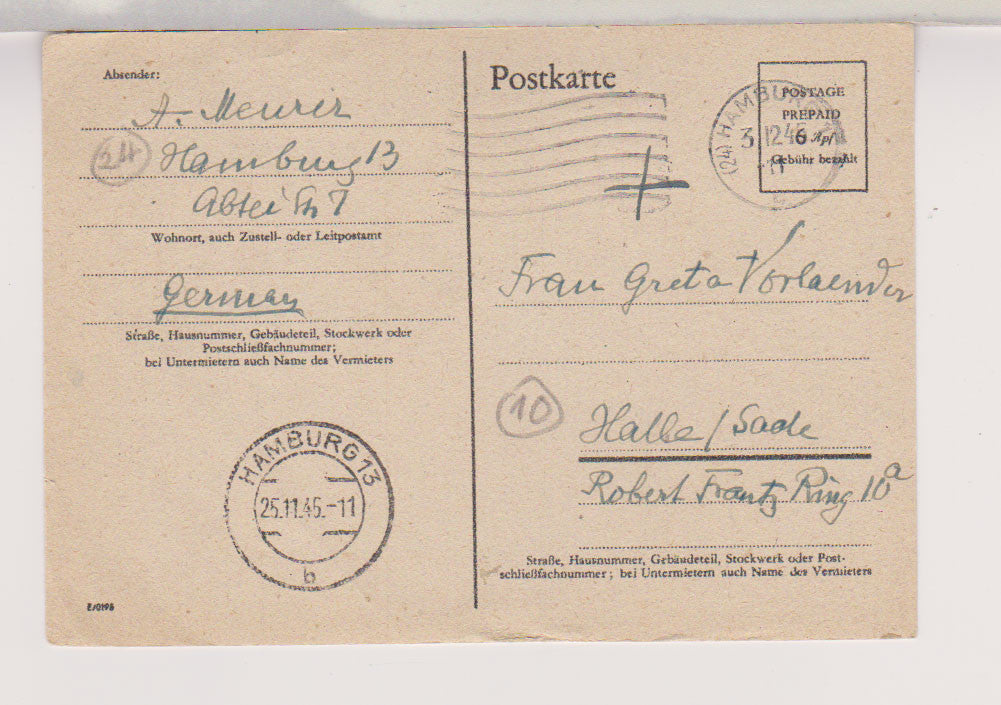 Absender:
A. Meurer
24
Hamburg 13
Abtei Str 7
Wohnort, auch Zustell- oder Leitpostamt
Germany
Straße, Hausnummer, Gebäudeteil, Stockwerk oder
Postschließfachnummer;
bei Untermietern auch Name des Vermieters
HAMBURG 13
25.11.45.-11
b
E/0198
Postkarte
POSTAGE
PREPAID
6 Rpf
Gebühr bezahlt
(24) HAMBURG
3.12.45
-11
Frau Greta Vorlaender
10
Halle/Saale
Robert Frantz Ring 10a
Straße, Hausnummer, Gebäudeteil, Stockwerk oder Post-
schließfachnummer; bei Untermietern auch Name des Vermieters